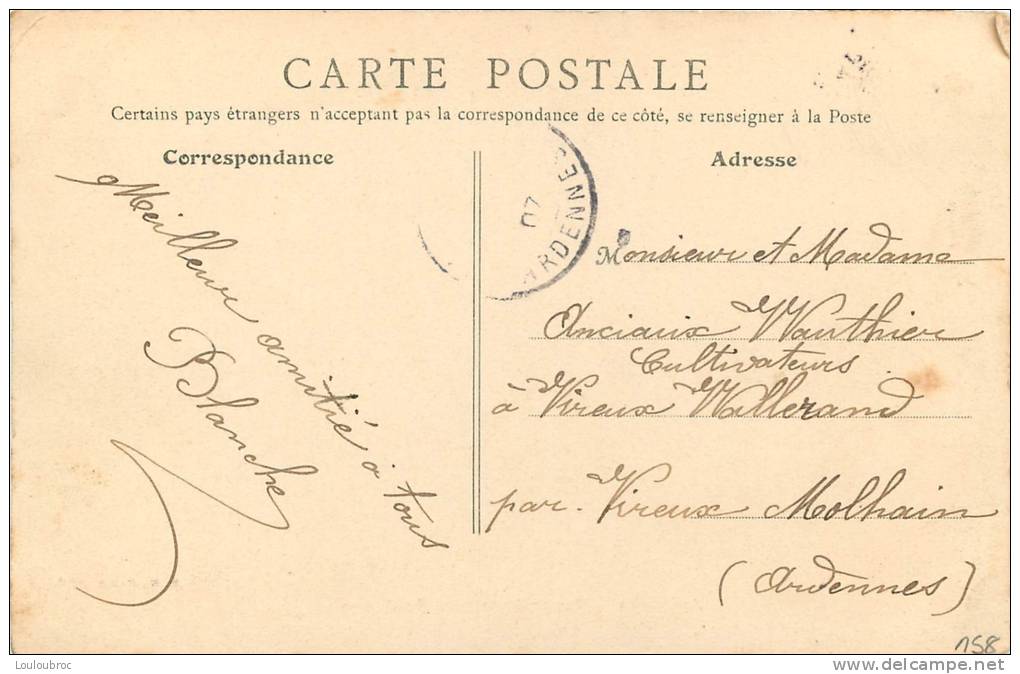 CARTE POSTALE
Certains pays étrangers n'acceptant pas la correspondance de ce côté, se renseigner à la Poste
Correspondance
Meilleure amitié à tous
Blanche
07
ARDENNES
Adresse
Monsieur et Madame
Anciaux Wauthier
Cultivateurs
à Vireux Wallerand
par Vireux Molhain
(Ardennes)
158
Louloubroc
www.delcampe.net